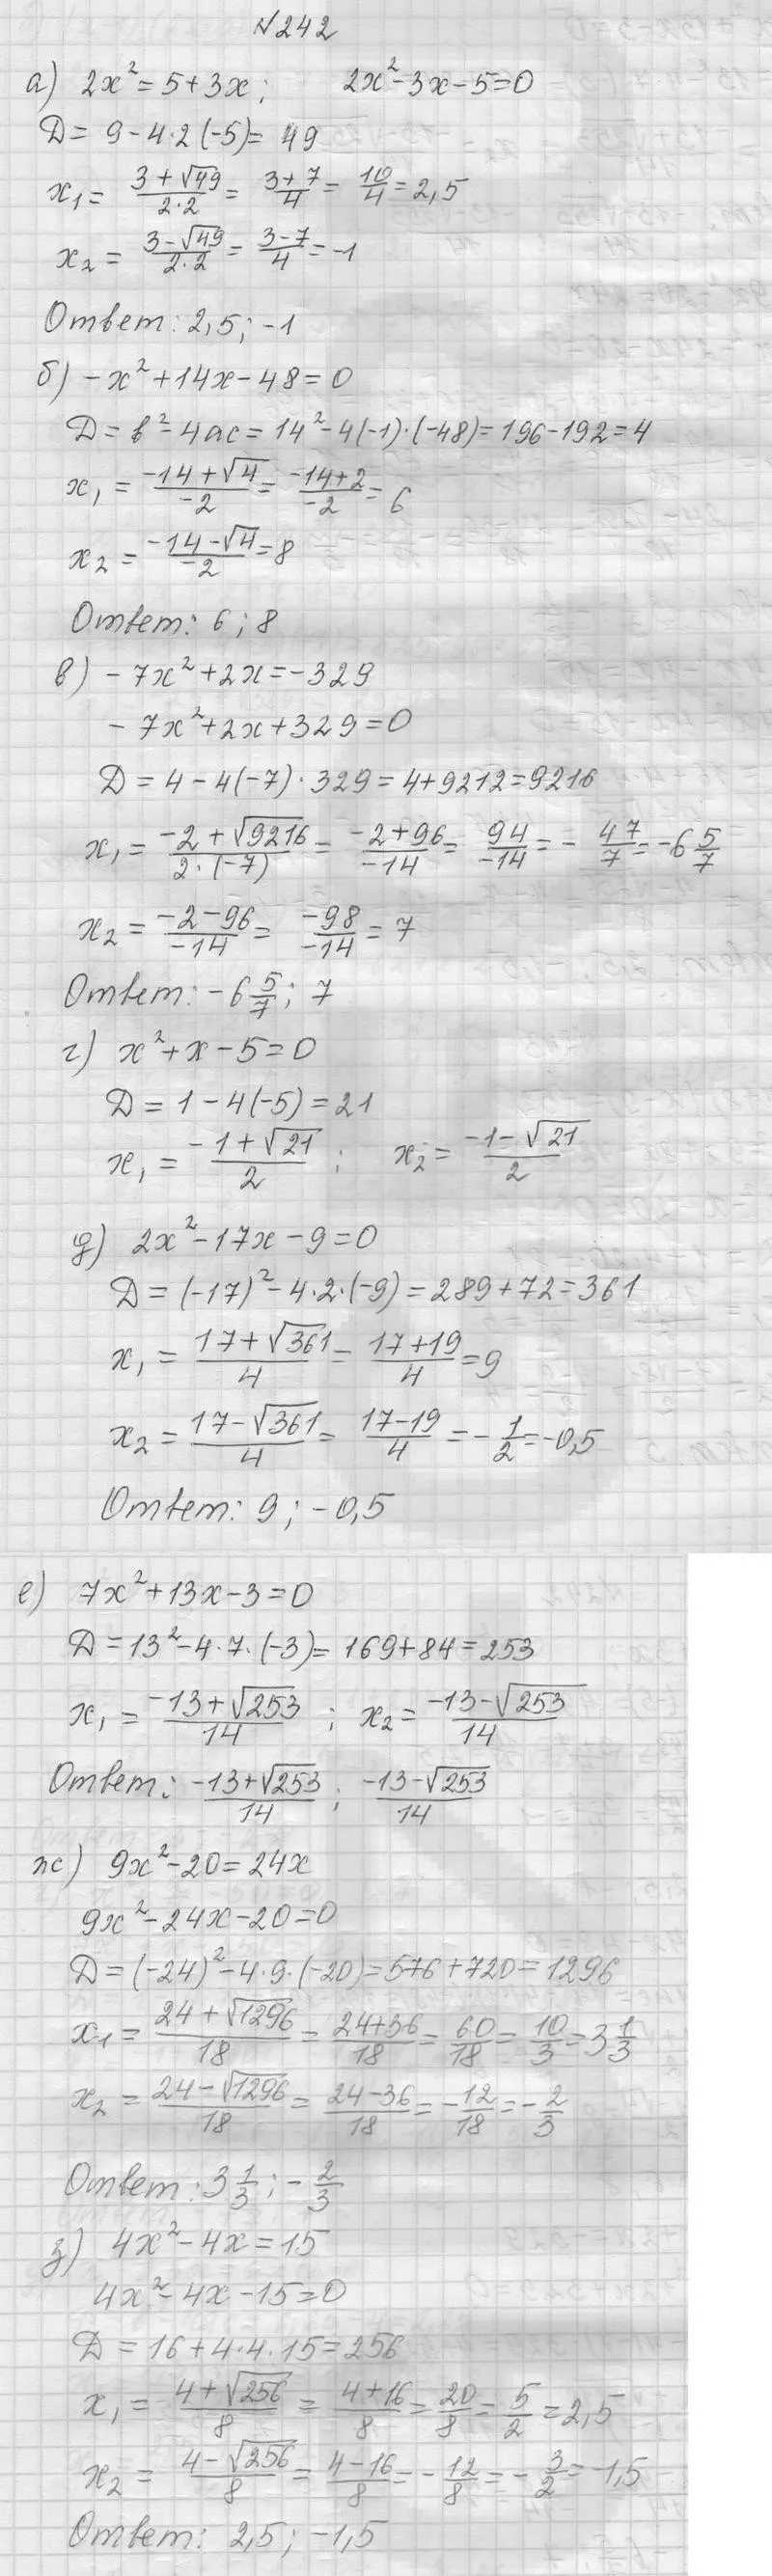 №242
а) 2x² = 5 + 3x ; 2x² - 3x - 5 = 0
D = 9 - 4·2(-5) = 49
x₁ = (3 + √49)/(2·2) = (3 + 7)/4 = 10/4 = 2,5
x₂ = (3 - √49)/(2·2) = (3 - 7)/4 = -1
Ответ: 2,5 ; -1
б) -x² + 14x - 48 = 0
D = b² - 4ac = 14² - 4(-1)·(-48) = 196 - 192 = 4
x₁ = (-14 + √4)/(-2) = (-14 + 2)/(-2) = 6
x₂ = (-14 - √4)/(-2) = 8
Ответ: 6 ; 8
в) -7x² + 2x = -329
-7x² + 2x + 329 = 0
D = 4 - 4(-7)·329 = 4 + 9212 = 9216
x₁ = (-2 + √9216)/(2·(-7)) = (-2 + 96)/(-14) = 94/(-14) = -47/7 = -6 5/7
x₂ = (-2 - 96)/(-14) = (-98)/(-14) = 7
Ответ: -6 5/7 ; 7
г) x² + x - 5 = 0
D = 1 - 4(-5) = 21
x₁ = (-1 + √21)/2 ; x₂ = (-1 - √21)/2
д) 2x² - 17x - 9 = 0
D = (-17)² - 4·2·(-9) = 289 + 72 = 361
x₁ = (17 + √361)/4 = (17 + 19)/4 = 9
x₂ = (17 - √361)/4 = (17 - 19)/4 = -1/2 = -0,5
Ответ: 9 ; -0,5
е) 7x² + 13x - 3 = 0
D = 13² - 4·7·(-3) = 169 + 84 = 253
x₁ = (-13 + √253)/14 ; x₂ = (-13 - √253)/14
Ответ: (-13 + √253)/14 ; (-13 - √253)/14
ж) 9x² - 20 = 24x
9x² - 24x - 20 = 0
D = (-24)² - 4·9·(-20) = 576 + 720 = 1296
x₁ = (24 + √1296)/18 = (24 + 36)/18 = 60/18 = 10/3 = 3 1/3
x₂ = (24 - √1296)/18 = (24 - 36)/18 = -12/18 = -2/3
Ответ: 3 1/3 ; -2/3
з) 4x² - 4x = 15
4x² - 4x - 15 = 0
D = 16 + 4·4·15 = 256
x₁ = (4 + √256)/8 = (4 + 16)/8 = 20/8 = 5/2 = 2,5
x₂ = (4 - √256)/8 = (4 - 16)/8 = -12/8 = -3/2 = -1,5
Ответ: 2,5 ; -1,5